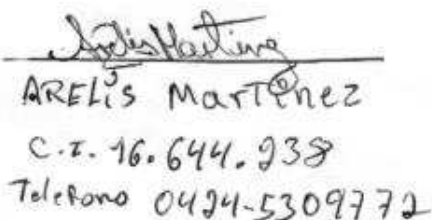 Arelis Martinez
ARELIS MarTinez
C.I. 16.644.238
Telefono 0424-5309772